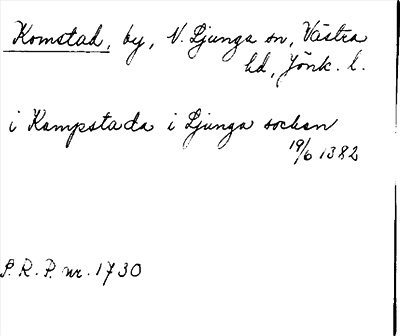 Komstad, by, N. Ljunga sn, Västra
hd, Jönk. l.
i Kampstada i Ljunga sochan
19/6 1382
S. R. P. nr. 1730